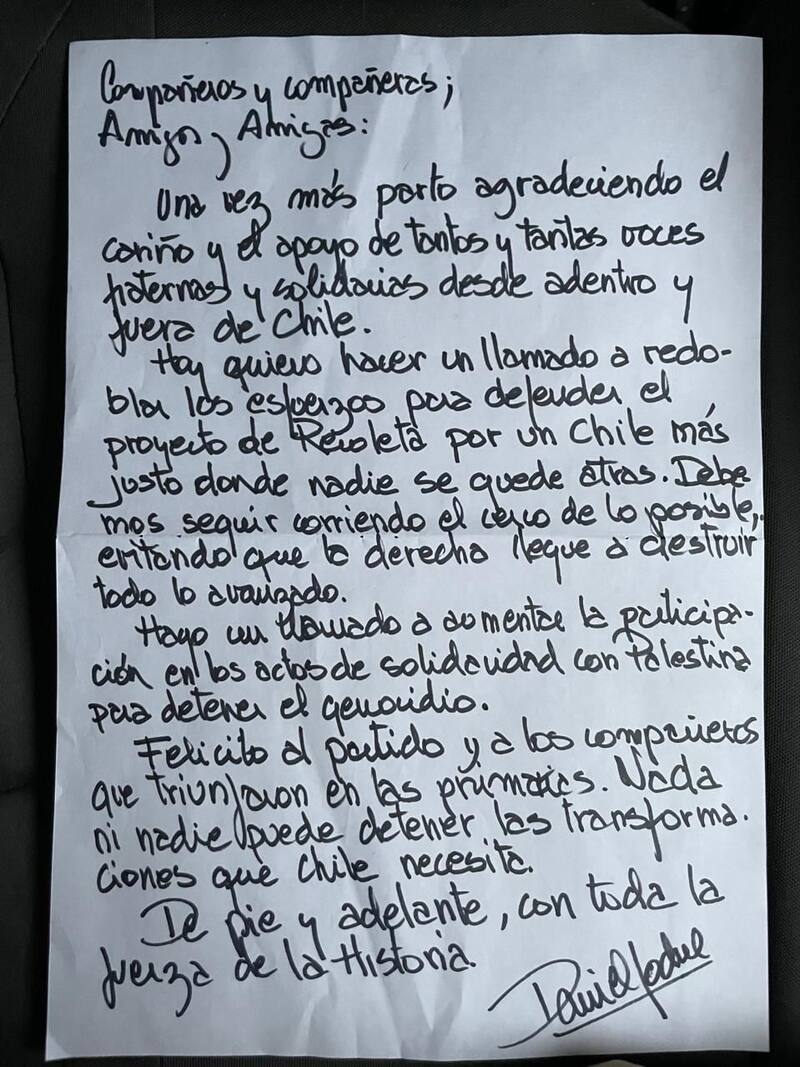 Compañeros y compañeras;
Amigos y Amigas:
Una vez más parto agradeciendo el
cariño y el apoyo de tantos y tantas voces
fraternas y solidarias desde adentro y
fuera de Chile.
Hoy quiero hacer un llamado a redo-
blar los esfuerzos para defender el
proyecto de Recoleta por un Chile más
justo donde nadie se quede atras. Debe
mos seguir corriendo el cerco de lo posible,
evitando que la derecha llegue a destruir
todo lo avanzado.
Hago un llamado a aumentar la participa-
ción en los actos de solidaridad con Palestina
para detener el genocidio.
Felicito al partido y a los compañeros
que triunfaron en las primarias. Nada
ni nadie puede detener las transforma-
ciones que Chile necesita.
De pie y adelante, con toda la
fuerza de la Historia.
Daniel Jadue